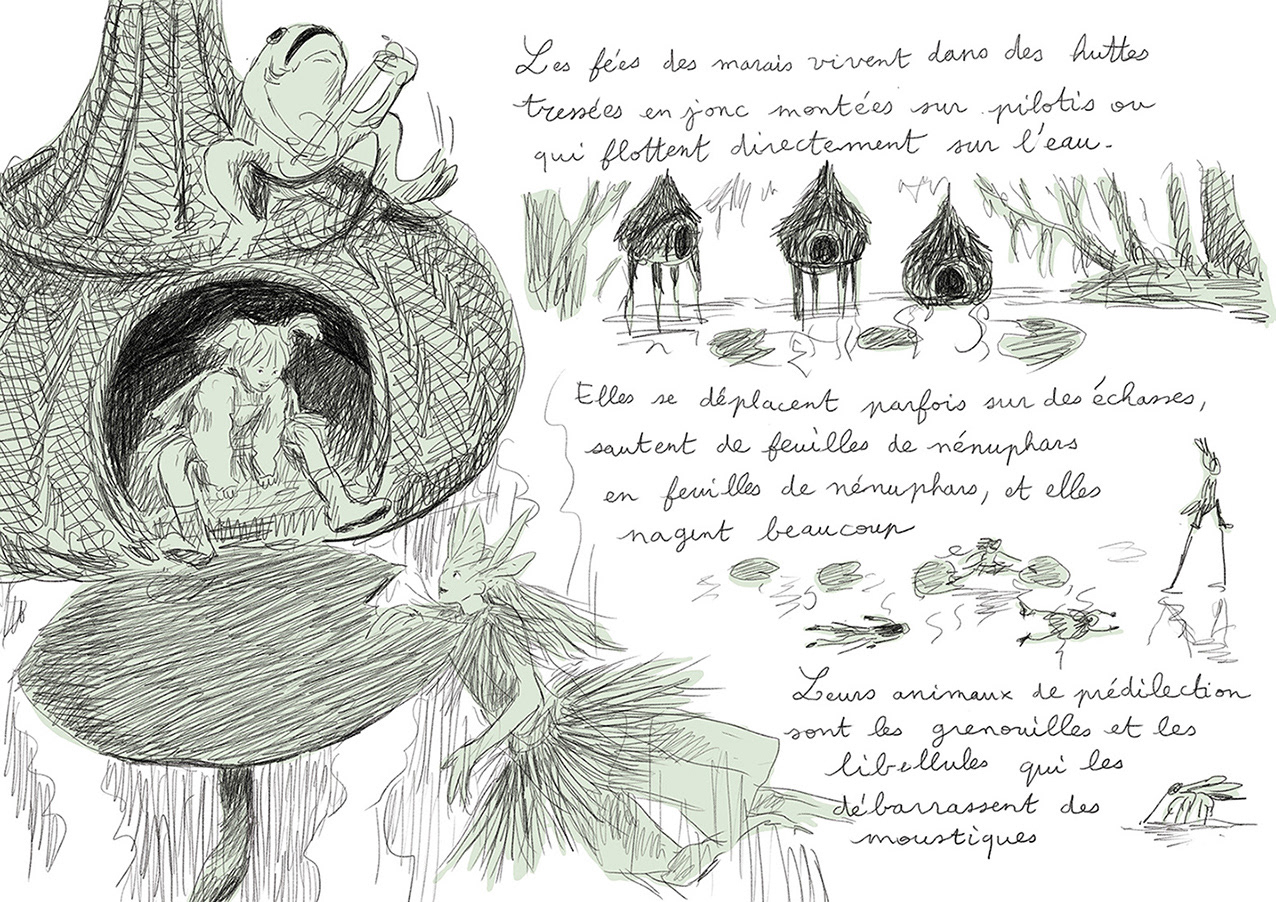 Les fées des marais vivent dans des huttes
tressées en jonc montées sur pilotis ou
qui flottent directement sur l'eau.
Elles se déplacent parfois sur des échasses,
sautent de feuilles de nénuphars
en feuilles de nénuphars, et elles
nagent beaucoup
Leurs animaux de prédilection
sont les grenouilles et les
libellules qui les
débarrassent des
moustiques